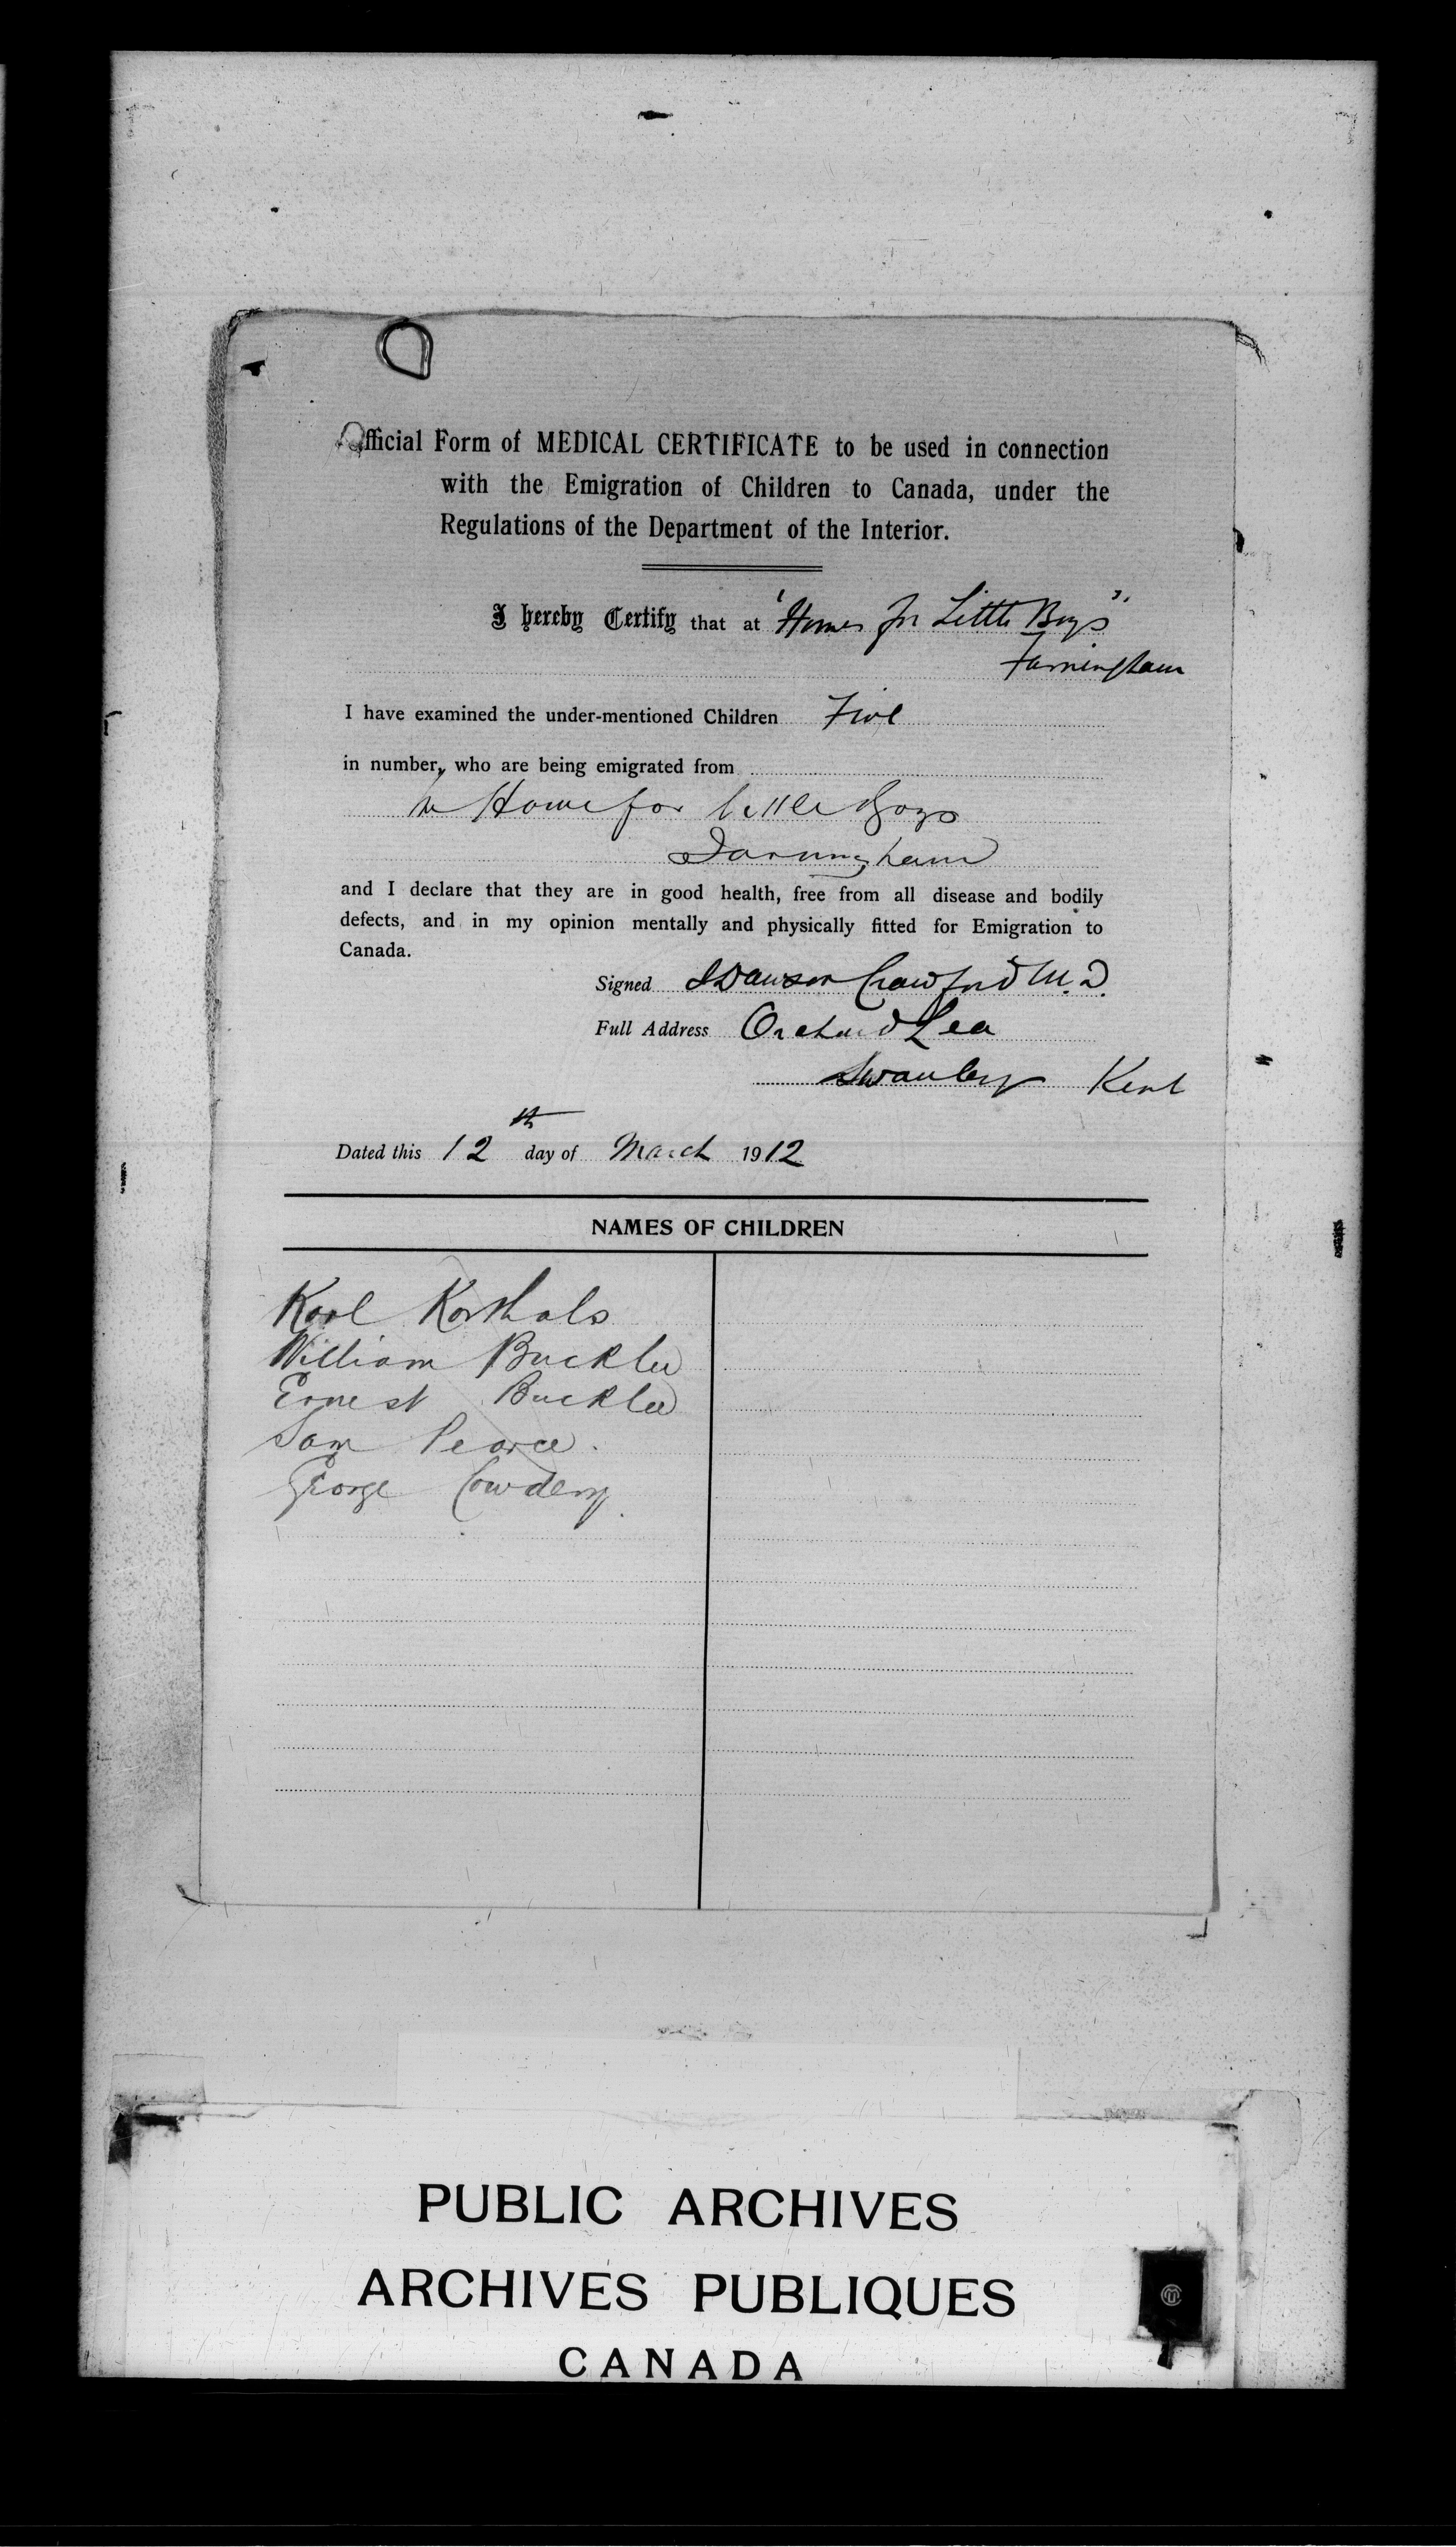 Official Form of MEDICAL CERTIFICATE to be used in connection
with the Emigration of Children to Canada, under the
Regulations of the Department of the Interior.
I hereby Certify that at "Homes for Little Boys"
Farningham
I have examined the under-mentioned Children Five
in number, who are being emigrated from
the Home for little Boys
Farningham
and I declare that they are in good health, free from all disease and bodily
defects, and in my opinion mentally and physically fitted for Emigration to
Canada.
Signed Dawson Crawford M.D.
Full Address Orchard Lea
Swanley Kent
Dated this 12th day of March 1912
NAMES OF CHILDREN
Karl Korthals
William Buckler
Ernest Buckler
Sam Pearce.
George Cowdery.
PUBLIC ARCHIVES
ARCHIVES PUBLIQUES
CANADA